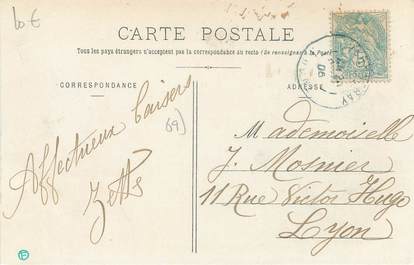 10 €
CARTE POSTALE
Tous les pays étrangers n'acceptent pas la correspondance au recto (de renseigner à la Poste)
CORRESPONDANCE
ADRESSE
Affectueux baisers
69)
Mademoiselle
J. Mosnier
11 Rue Victor Hugo
Lyon